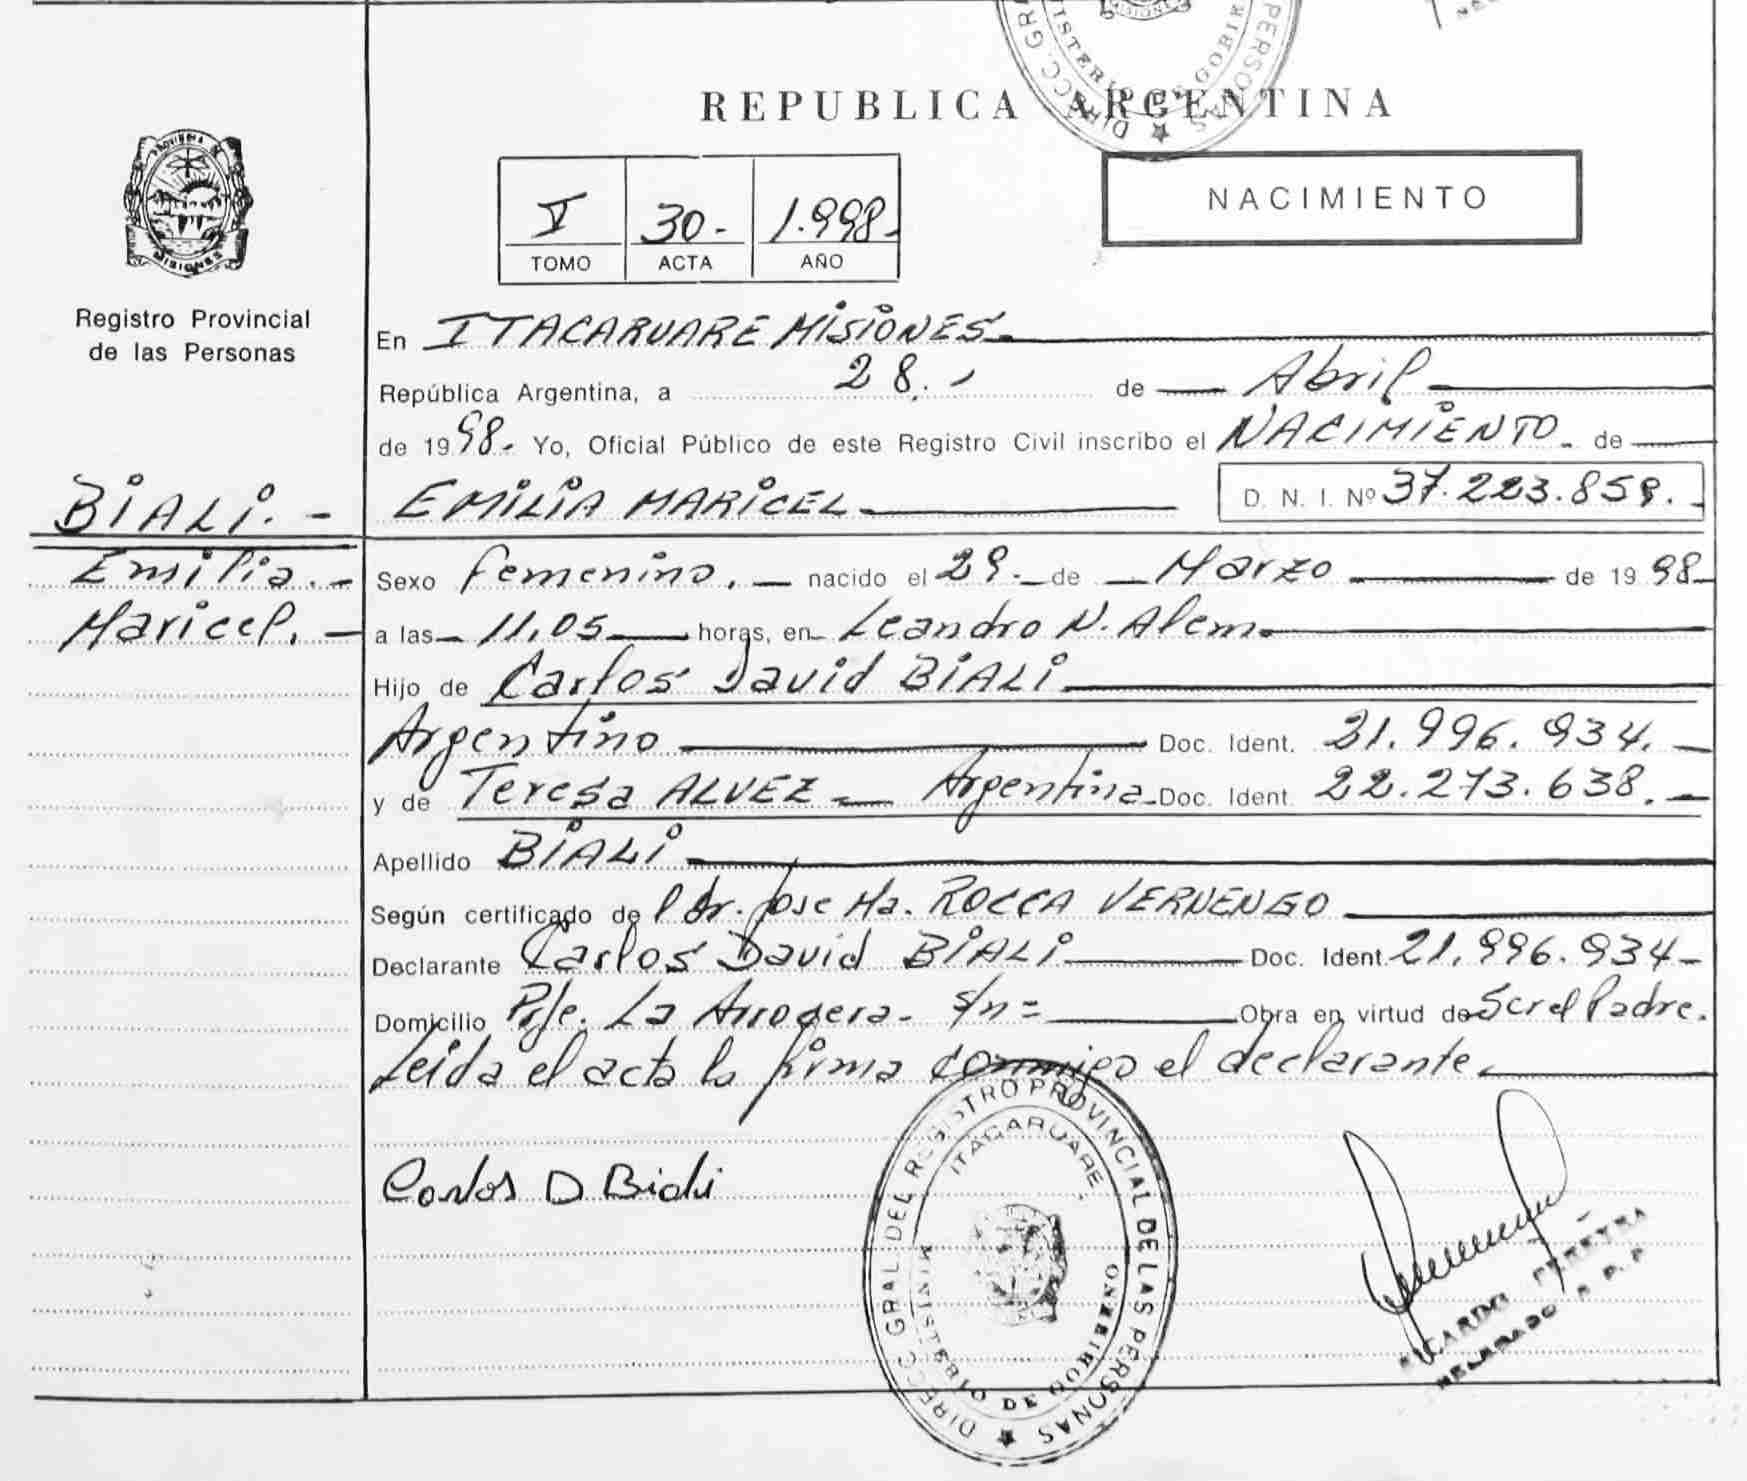 REPUBLICA ARGENTINA
PROVINCIA DE
MISIONES
Registro Provincial
de las Personas
V 30- 1.998-
TOMO ACTA AÑO
NACIMIENTO
En ITACARUARE MISIONES
República Argentina, a 28.- de Abril
de 1998- Yo, Oficial Público de este Registro Civil inscribo el NACIMIENTO- de
BIALI.- EMILIA MARICEL D. N. I. Nº 37.223.859.-
Emilia.- Sexo femenino.- nacido el 29- de Marzo de 1998-
Maricel.- a las 11,05 horas, en Leandro N. Alem
Hijo de Carlos David BIALI
Argentino Doc. Ident. 21.996.934.-
y de Teresa ALVEZ - Argentina - Doc. Ident. 22.273.638.-
Apellido BIALI
Según certificado del Dr. Jose Ma. ROCCA VERNENGO
Declarante Carlos David BIALI Doc. Ident. 21.996.934-
Domicilio La s/n= Obra en virtud de Ser el Padre.
Leida el acta la firma conmigo el declarante.
Carlos D Biali
DIRECC GRAL DEL REGISTRO PROVINCIAL DE LAS PERSONAS
ITACARUARE -
MINISTERIO DE GOBIERNO
RICARDO PEREYRA